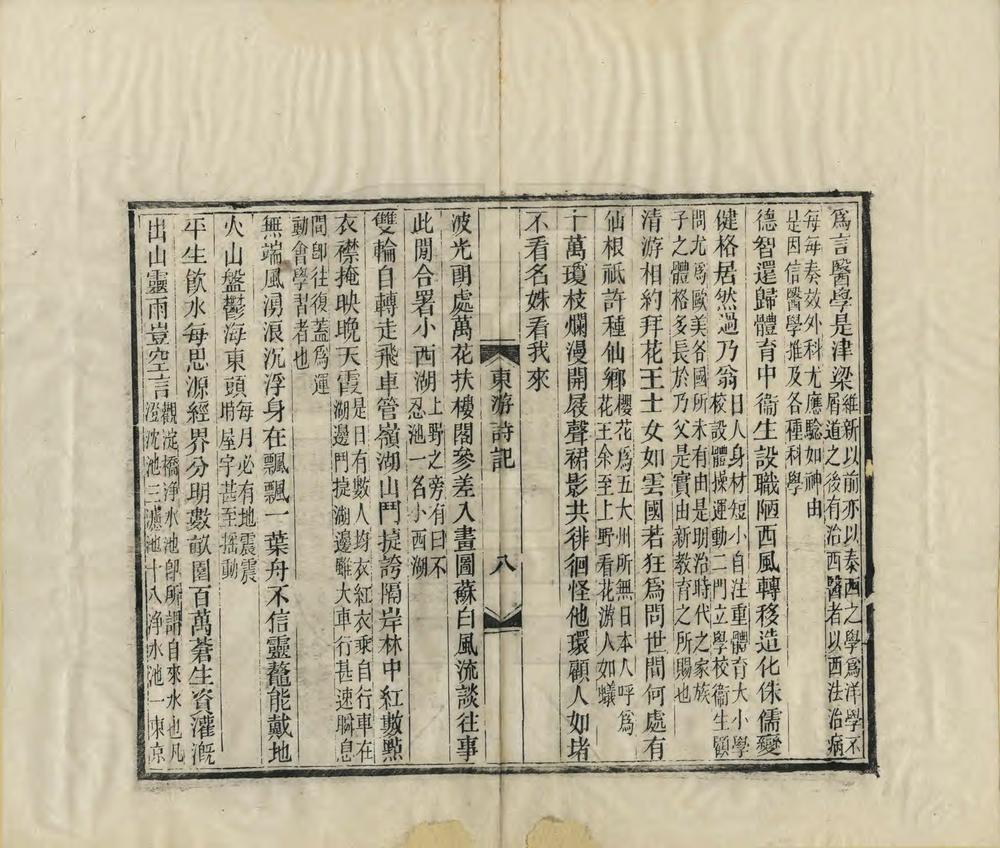 爲言醫學是津梁維新以前亦以泰西之學爲洋學不
屑道之後有治西醫者以西法治病
每每奏效外科尤應驗如神由
是因信醫學推及各種科學
德智還歸體育中衞生設職陋西風轉移造化侏儒變
健格居然過乃翁日人身材短小自注重體育大小學
校設體操運動二門立學校衞生顧
問尤爲歐美各國所未有由是明治時代之家族
子之體格多長於乃父是實由新教育之所賜也
清游相約拜花王士女如雲國若狂爲問世間何處有
仙根祇許種仙鄉櫻花爲五大州所無日本人呼爲
花王余至上野看花游人如蟻
十萬瓊枝爛漫開屐聲裙影共徘徊怪他環顧人如堵
不看名姝看我來
東游詩記
八
波光明處萬花扶樓閣參差入畫圖蘇白風流談往事
此閒合署小西湖上野之旁有曰不
忍池一名小西湖
雙輪自轉走飛車管嶺湖山鬥捷誇隔岸林中紅數點
衣襟掩映晚天霞是日有數人均衣紅衣乘自行車在
湖邊鬥捷湖邊雖大車行甚速瞬息
間卽往復蓋爲運
動會學習者也
無端風湧浪沉浮身在飄飄一葉舟不信靈鼇能戴地
火山盤鬱海東頭每月必有地震震
時屋宇甚至搖動
平生飮水每思源經界分明數畝園百萬蒼生資灌漑
出山靈雨豈空言觀淀橋浄水池卽所謂自來水也凡
澄沈池三濾池十八浄水池一東京